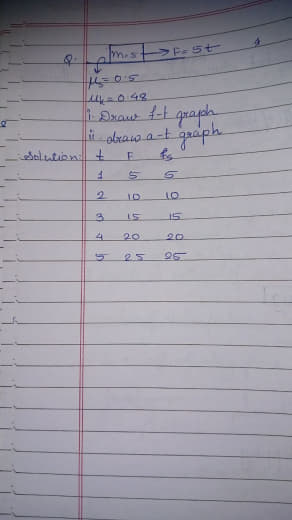 Q. m=5 → F= 5t
μs = 0.5
μk = 0.48
i. Draw f-t graph
ii. draw a-t graph
Solution: t F fs
1 5 5
2 10 10
3 15 15
4 20 20
5 25 25